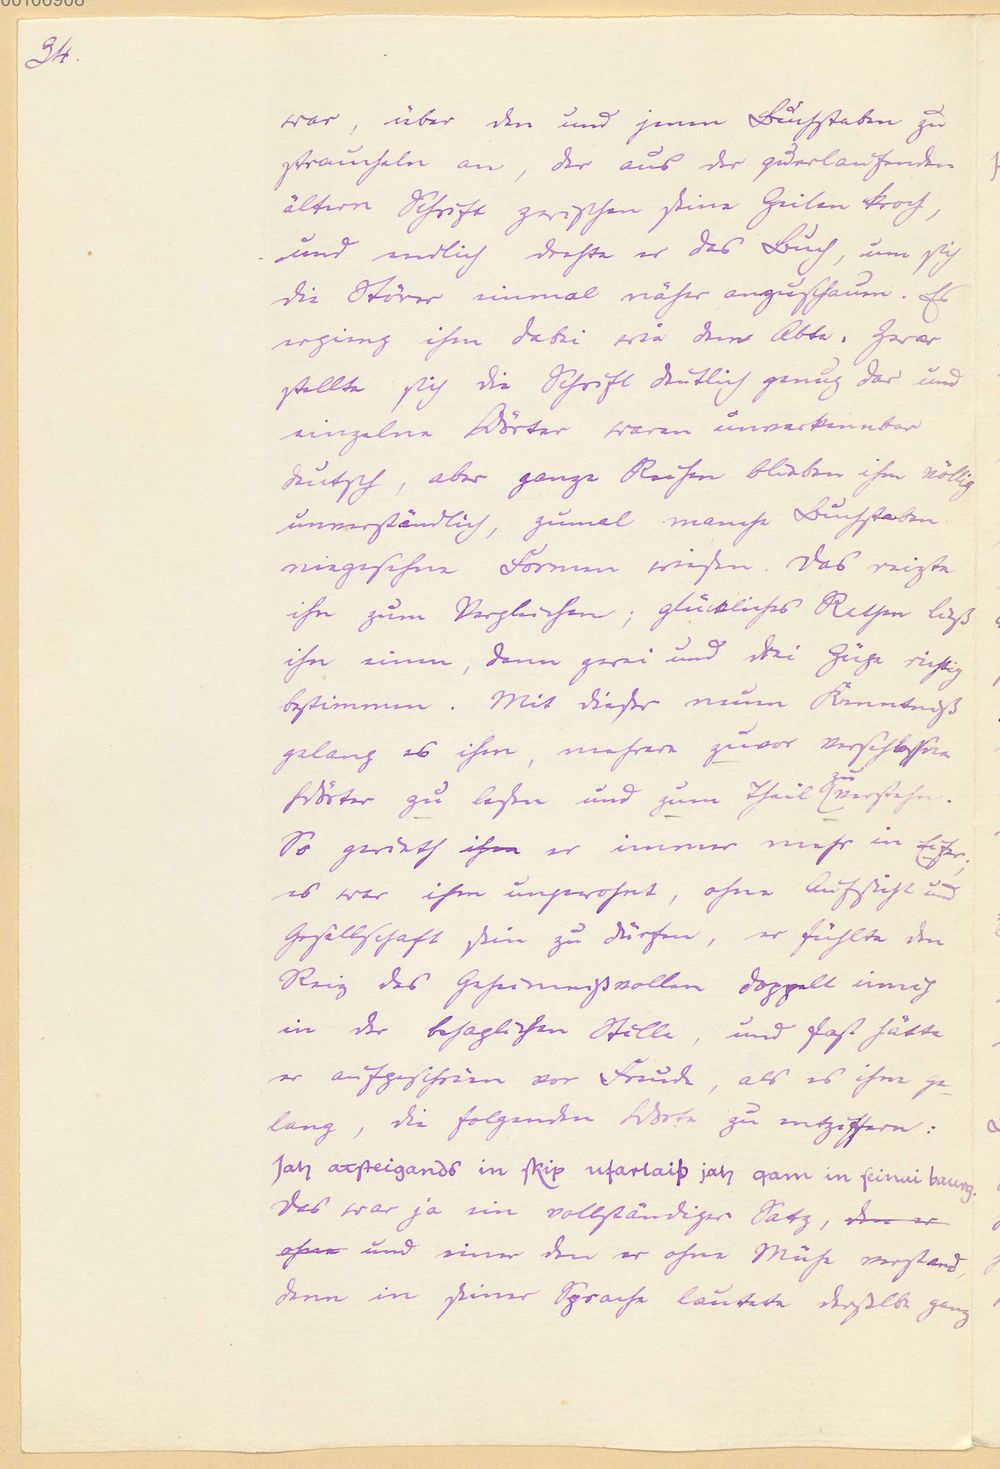 00106968
34.
war, über den und jenen Buchstaben zu
straucheln an, der aus der querlaufenden
ältern Schrift zwischen seine Zeilen kroch,
und endlich drehte er das Buch, um sich
die Störer einmal näher anzuschauen. Es
erging ihm dabei wie dem Abte. Zwar
stellte sich die Schrift deutlich genug dar und
einzelne Wörter waren unverkennbar
deutsch, aber ganze Reihen blieben ihm völlig
unverständlich, zumal manche Buchstaben
niegesehne Formen wiesen. Das reizte
ihn zum Vergleichen; glückliches Rathen ließ
ihn einen, dann zwei und drei Züge richtig
bestimmen. Mit dieser neuen Kenntniß
gelang es ihm, mehrere zuvor verschlossne
Wörter zu lesen und zum Theil zu verstehn.
So gerieth ihm er immer mehr in Eifer;
es war ihm ungewohnt, ohne Aufsicht und
Gesellschaft sein zu dürfen, er fühlte den
Reiz des Geheimnißvollen doppelt innig
in der behaglichen Stille, und fast hätte
er aufgeschrieen vor Freude, als es ihm ge-
lang, die folgenden Worte zu entziffern:
Jah atsteigands in skip ufarlaiþ jah qam in seinai baurg.
Das war ja ein vollständiger Satz, den er
ohne und einer den er ohne Mühe verstand,
denn in seiner Sprache lautete derselbe ganz